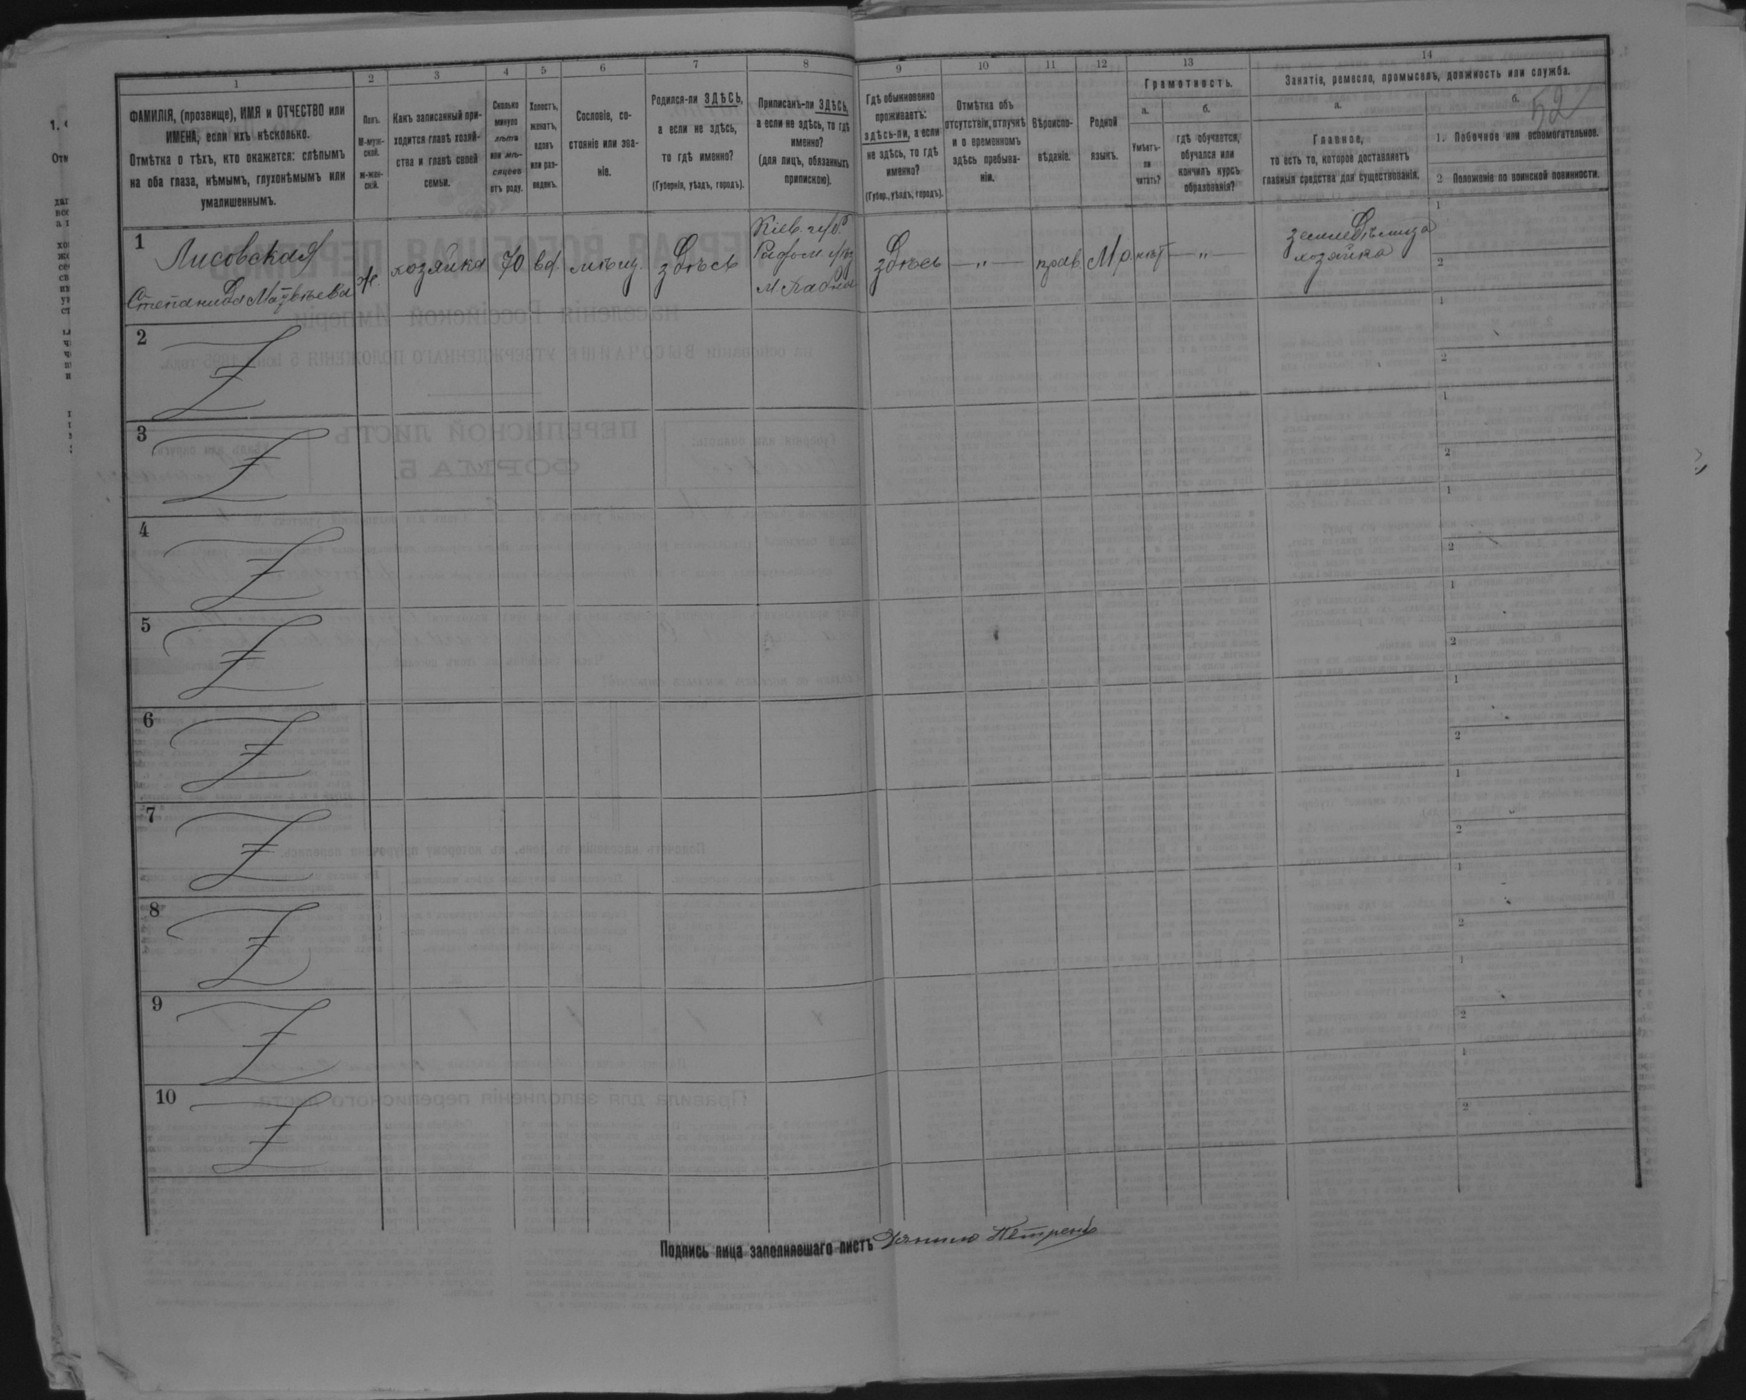 52
1 2 3 4 5 6 7 8 9 10 11 12 13 14
ФАМИЛІЯ, (прозвище), ИМЯ и ОТЧЕСТВО или
ИМЕНА, если ихъ нѣсколько.
Отмѣтка о тѣхъ, кто окажется: слѣпымъ
на оба глаза, нѣмымъ, глухонѣмымъ или
умалишеннымъ.
Полъ.
М-муж-
ской.
Ж-жен-
скій.
Какъ записанный при-
ходится главѣ хозяй-
ства и главѣ своей
семьи.
Сколько
минуло
лѣтъ
или мѣ-
сяцевъ
отъ роду.
Холостъ,
женатъ,
вдовъ
или раз-
веденъ.
Сословіе, со-
стояніе или зва-
ніе.
Родился-ли ЗДѢСЬ,
а если не здѣсь,
то гдѣ именно?
(Губернія, уѣздъ, городъ).
Приписанъ-ли ЗДѢСЬ,
а если не здѣсь, то гдѣ
именно?
(для лицъ, обязанныхъ
припискою).
Гдѣ обыкновенно
проживаетъ:
здѣсь-ли, а если
не здѣсь, то гдѣ
именно?
(Губер., уѣздъ, городъ).
Отмѣтка объ
отсутствіи, отлучкѣ
и о временномъ
здѣсь пребыва-
ніи.
Вѣроиспо-
вѣданіе.
Родной
языкъ.
Грамотность.
а.
Умѣетъ-
ли
читать?
б.
гдѣ обучается,
обучался или
кончилъ курсъ
образованія?
Занятіе, ремесло, промыселъ, должность или служба.
а.
Главное,
то есть то, которое доставляетъ
главныя средства для существованія.
б.
1. Побочное или вспомогательное.
2 Положеніе по воинской повинности.
1 Лисовская
Степанида Матвѣева
ж.
хозяйка
70
вд
мѣщ.
здѣсь
Кіев. губ
Радом. уѣз
здѣсь
— „ —
прав
Мр
нѣт
— „ —
земледѣлица
хозяйка
1
2
2
1
2
3
1
2
4
1
2
5
1
2
6
1
2
7
1
2
8
1
2
9
1
2
10
1
2
Подпись лица заполнявшаго листъ